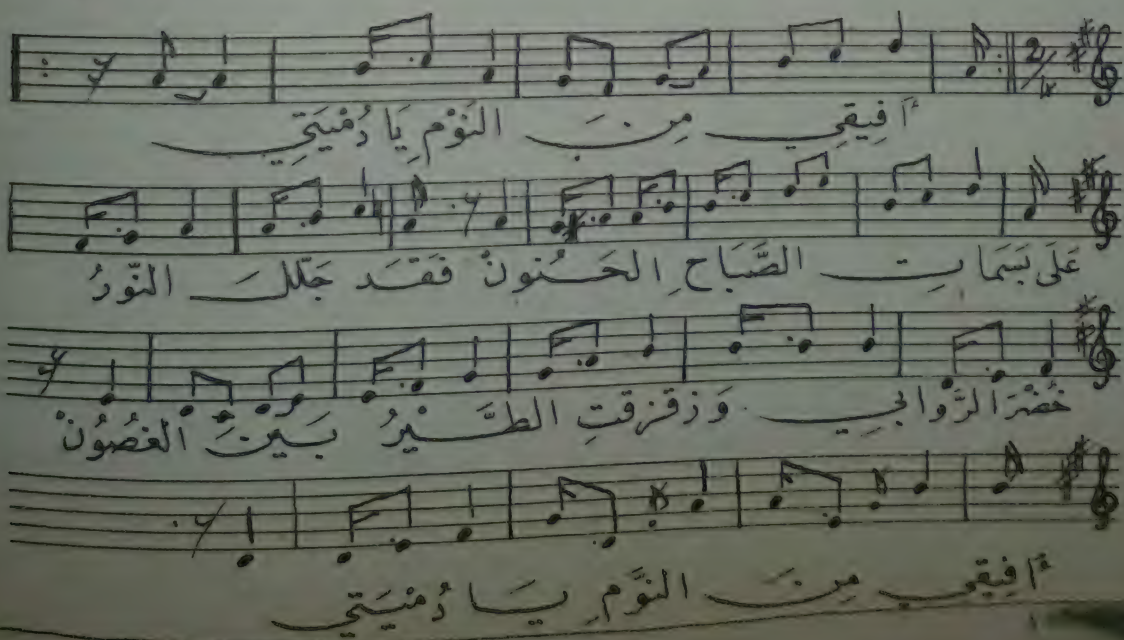 2/4
أفِيقِي مِنَ النَوْمِ يَا دُمْيَتِي
عَلَى بَسَمَاتِ الصَّبَاحِ الحَنُونْ فَقَد جَلَّلَ النّورُ
خُضْرَ الرَّوابِي وَزقزقتِ الطَّيْرُ بَيْنَ الغصُونْ
أفِيقِي مِنَ النوَّمِ يَا دُمْيَتِي